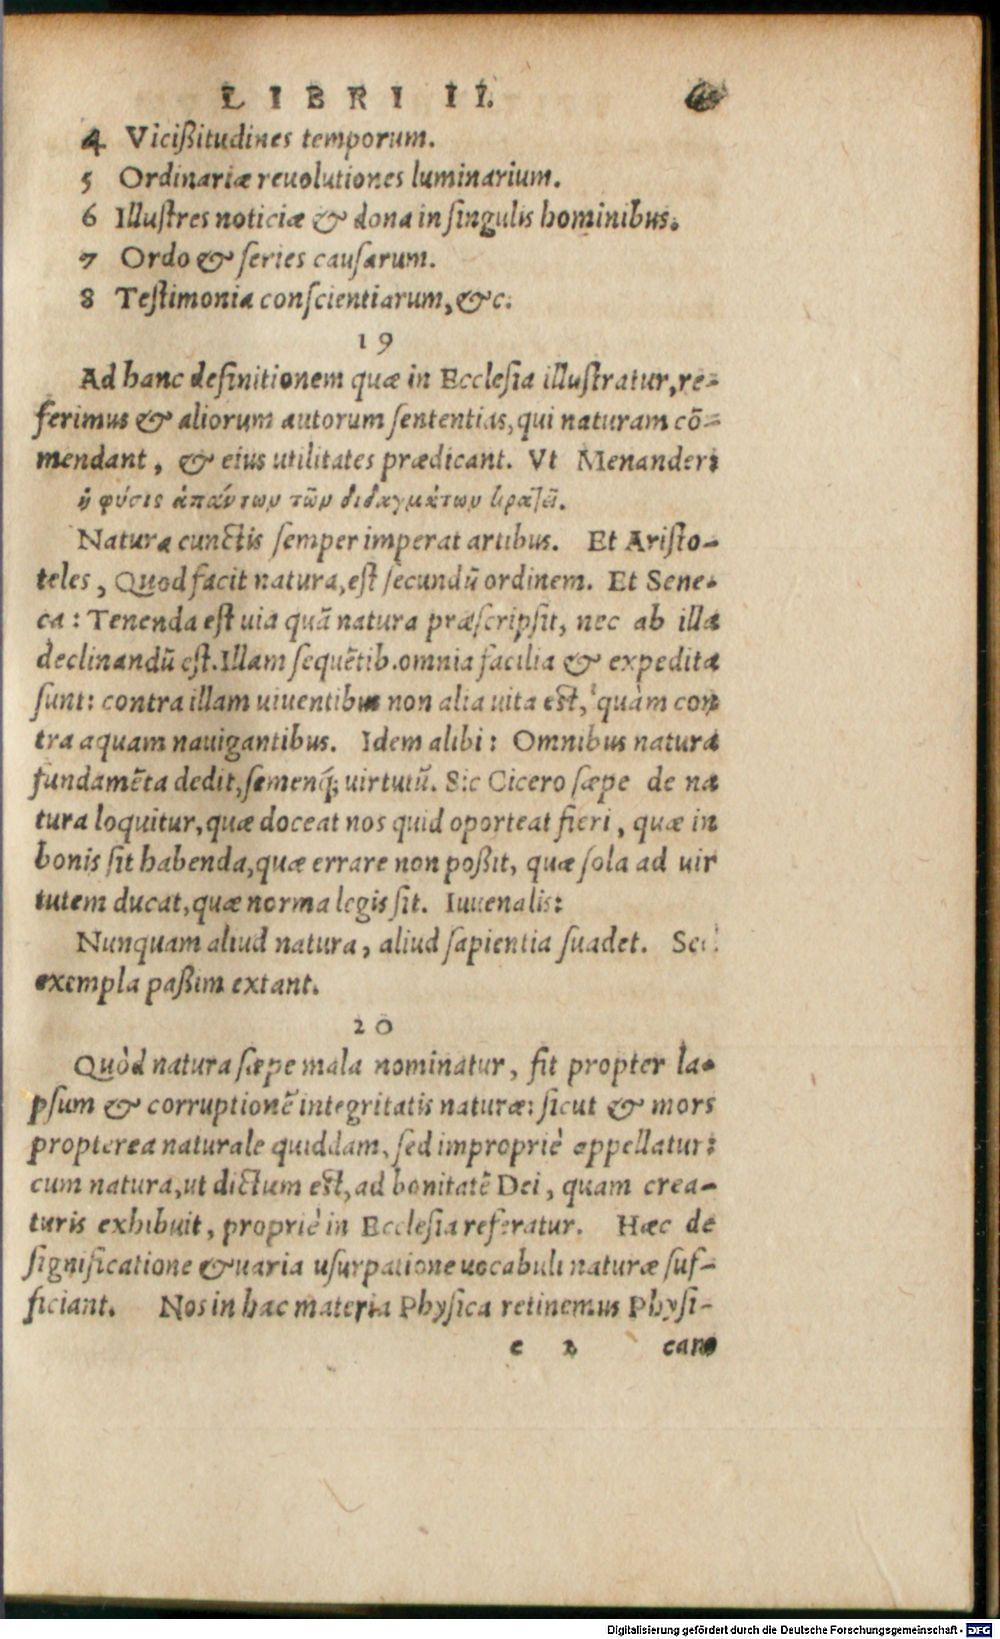 LIBRI II.
4 Vicißitudines temporum.
5 Ordinariæ reuolutiones luminarium.
6 Illuſtres noticiæ & dona in ſingulis hominibus.
7 Ordo & ſeries cauſarum.
8 Teſtimonia conſcientiarum, &c.
19
Ad hanc definitionem quæ in Eccleſia illuſtratur, re-
ferimus & aliorum autorum ſententias, qui naturam cõ-
mendant, & eius utilitates prædicant. Vt Menander:
ἡ φύσις ἁπάντων τῶν διδαγμάτων
Natura cunctis ſemper imperat artibus. Et Ariſto-
teles, Quod facit natura, eſt ſecundũ ordinem. Et Sene-
ca: Tenenda eſt uia quã natura præſcripſit, nec ab illa
declinandũ eſt. Illam ſequẽtib. omnia facilia & expedita
ſunt: contra illam uiuentibus non alia uita eſt, quàm con
tra aquam nauigantibus. Idem alibi: Omnibus natura
fundamẽta dedit, ſemenq́; uirtutũ. Sic Cicero ſæpe de na
tura loquitur, quæ doceat nos quid oporteat fieri, quæ in
bonis ſit habenda, quæ errare non poßit, quæ ſola ad uir
tutem ducat, quæ norma legis ſit. Iuuenalis:
Nunquam aliud natura, aliud ſapientia ſuadet. Sed
exempla paßim extant.
20
Quòd natura ſæpe mala nominatur, fit propter la-
pſum & corruptionẽ integritatis naturæ: ſicut & mors
propterea naturale quiddam, ſed impropriè appellatur:
cum natura, ut dictum eſt, ad bonitatẽ Dei, quam crea-
turis exhibuit, propriè in Eccleſia referatur. Hæc de
ſignificatione & uaria uſurpatione uocabuli naturæ ſuf-
ficiant. Nos in hac materia Phyſica retinemus Phyſi-
c 2 cam
Digitalisierung gefördert durch die Deutsche Forschungsgemeinschaft - DFG